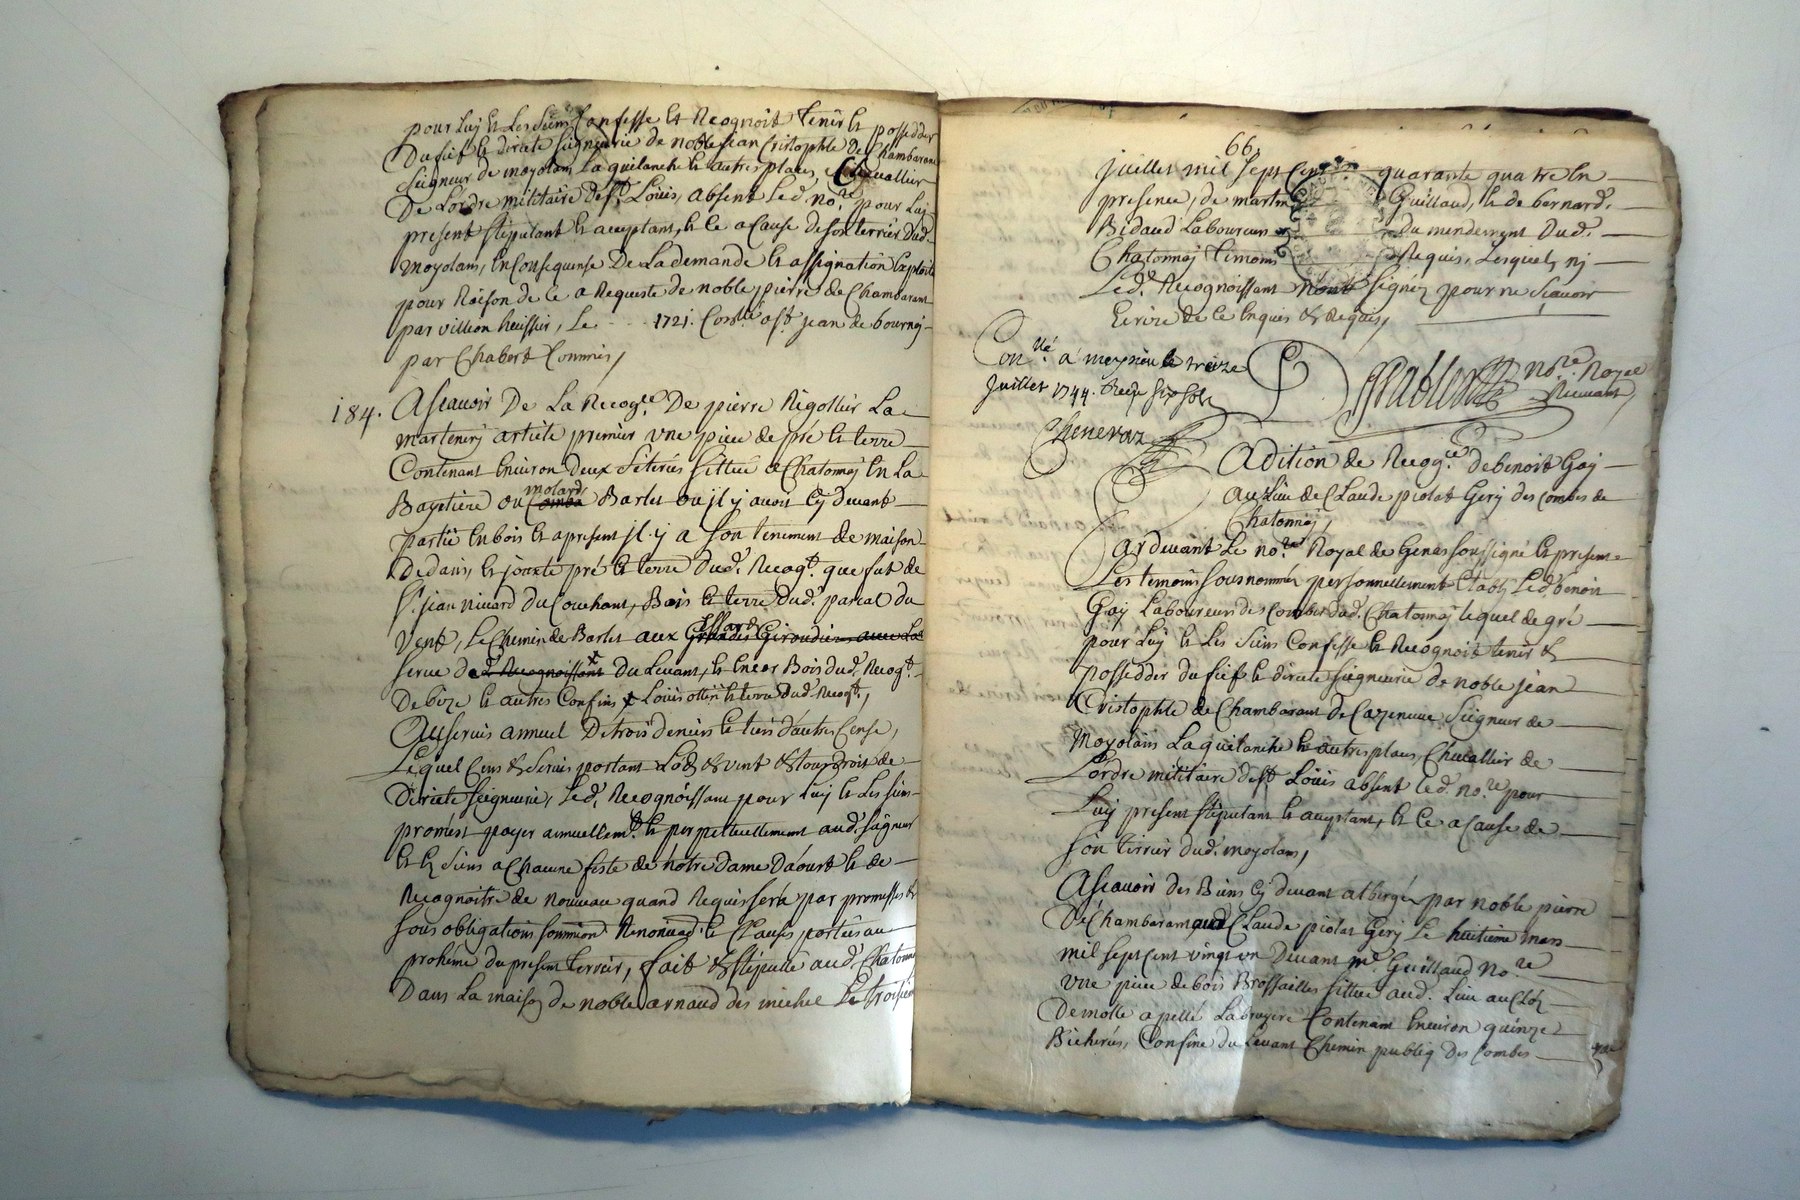 pour luy et les siens Confesse et Recognoit tenir et posseder
Du fief et directe seigneurie de noble jean Cristophle De Chambarant
seigneur de moyolans La quilanche et autres places, Chevallier
De Lordre militaire de st. Louis, absent led. nore. pour luy
present stipulant et acceptant, et ce a Cause de son terrier dud.
moyolans, en Consequense De La demande et assignation Exploité
pour Raison de ce a Requeste de noble pierre de Chambarant
par villion huissier, Le ... 1721. Conllé a st. jean de bournay
par Chabert Commis,
184. Ascavoir De La Recogce. De pierre Rigollier La
martenery article premier une piece de pré et terre
Contenant Environ deux seterées sittué a Chatonnay En La
Bayetiere ou Comba molard Barlet ou jl y avoit Cy devant
partie en bois et a present jl y a son tenement de maison
Dedans, et jouxte pré et terre dud. Recogt. que fut de
sr. jean nivard du Couchant, Bois et terre dud. pascal du
vent, Le Chemin de Barlet aux Grandes Essards Giroudieres aux La
serve de d. Recognoissant du Levant, et encor Bois dud. Recogt.
De bize et autres Confins x Louis ollier et terre dud. Recogt.,
Au servis annuel De trois deniers et tiers d'autre Cense,
Lequel Cens et servis portant Lods et vent et tous droit de
Directe seigneurie, led. Recognoissant pour luy et les siens
promest payer annuellemt. et perpetuellement aud. seigneur
et les siens a Chacune feste de notre Dame D'aoust et de
Recognoitre de nouveau quand Requis sera par promesses et
sous obligations soumions Renonciaons et Clauses portées au
prohéme du present terrier, fait et stipullé aud. Chatonnay
Dans La maison de noble arnaud des michel Le troisieme
66.
juillet mil sept Cent quarante quatre En
presence, de martin Guillaud, et de bernard.
Bidaud Laboureurs du mendement dud.
Chatonnay temoins Requis, Lesquels ny
Led. Recognoissant n'ont signés pour ne scavoir
Ecrire de ce Enquis et Requis,
Conllé a meyrieu le treize
Juillet 1744. Recu six sols
Cheneraz
nore. Royal
Recevant,
Adition de Recogce. de benoit Gay
au Lieu de Claude piolat Gery des Combes de
Chatonnay,
Pardevant Le nore. Royal de Genas soussigné et presents
Les temoins sousnommés personnellement Etably Led. benoit
Gay Laboureur des Combes dud. Chatonnay lequel de gré
pour luy et les siens Confesse et Recognoit tenir et
possedder du fief et directe seigneurie de noble jean
Cristophle de Chambarant De Cazeneuve seigneur de
Moyolans La quilanche et autres places, Chevallier de
L'ordre militaire de st. Louis absent led. nore. pour
Luy present stipulant et acceptant, et ce a Cause de
son terrier dud. moyolans,
Ascavoir des Biens Cy devant albergés par noble pierre
De Chambarant aud. Claude piolat Gery Le huitieme mars
mil sept cent vingt un Devant me. Guillaud nore.
une piece de bois Brossailles sittué aud. Lieu au Cloz
De molle apellé La bruyere Contenant Environ quinze
Bicherées, Confine du Levant Chemin publiq des Combes